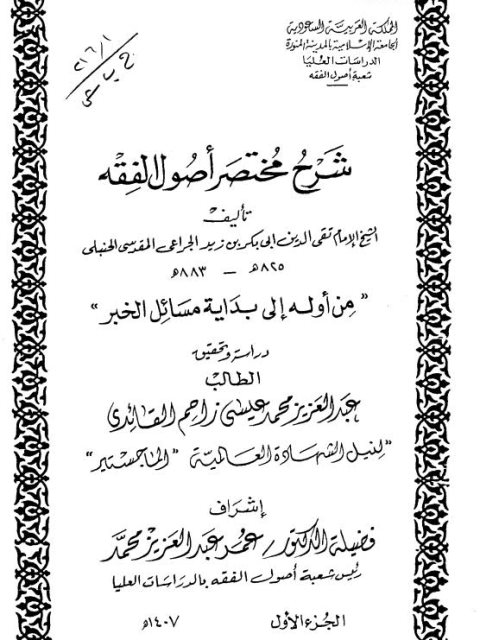 المملكة العربية السعودية
الجامعة الإسلامية بالمدينة المنورة
الدراسات العليا
شعبة أصول الفقه
شرح مختصر أصول الفقه
تأليف
الشيخ الإمام تقي الدين ابي بكر بن زيد الجراعي المقدسي الحنبلي
٨٢٥هـ – ٨٨٣هـ
"من أوله إلى بداية مسائل الخبر"
دراسة وتحقيق
الطالب
عبدالعزيز محمد عيسى مزاحم القائدي
"لنيل الشهادة العالمية "الماجستير"
إشراف
فضيلة الدكتور/ عمر عبدالعزيز محمد
رئيس شعبة أصول الفقه بالدراسات العليا
الجزء الأول ١٤٠٧هـ